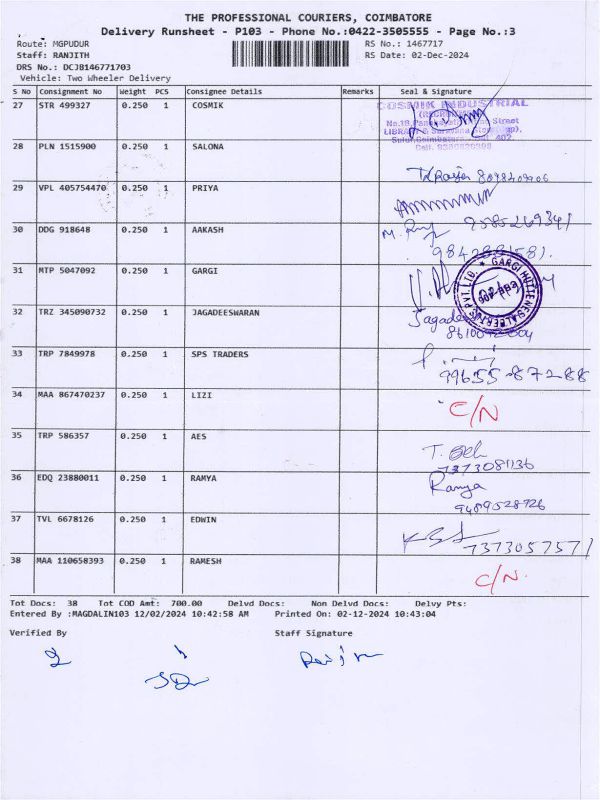 THE PROFESSIONAL COURIERS, COIMBATORE
Delivery Runsheet - P103 - Phone No.:0422-3505555 - Page No.:3
Route: MGPUDUR
Staff: RANJITH
DRS No.: DCJB146771703
Vehicle: Two Wheeler Delivery
RS No.: 1467717
RS Date: 02-Dec-2024
S No Consignment No Weight PCS Consignee Details Remarks Seal & Signature
27 STR 499327 0.250 1 COSMIK
COSMIK INDUSTRIAL
Street
LIBRARY &
402
28 PLN 1515900 0.250 1 SALONA
8098409906
29 VPL 405754470 0.250 1 PRIYA
9585269341
30 DDG 918648 0.250 1 AAKASH
31 MTP 5047092 0.250 1 GARGI
GARGI HUTTENES ALBERTUS PVT. LTD.
32 TRZ 345090732 0.250 1 JAGADEESWARAN
33 TRP 7849978 0.250 1 SPS TRADERS
99655 87288
34 MAA 867470237 0.250 1 LIZI C/N
35 TRP 586357 0.250 1 AES
7373081136
36 EDQ 23880011 0.250 1 RAMYA Ramya
9489528926
37 TVL 6678126 0.250 1 EDWIN
7373057571
38 MAA 110658393 0.250 1 RAMESH C/N
Tot Docs: 38 Tot COD Amt: 700.00 Delvd Docs: Non Delvd Docs: Delvy Pts:
Entered By :MAGDALIN103 12/02/2024 10:42:58 AM Printed On: 02-12-2024 10:43:04
Verified By Staff Signature